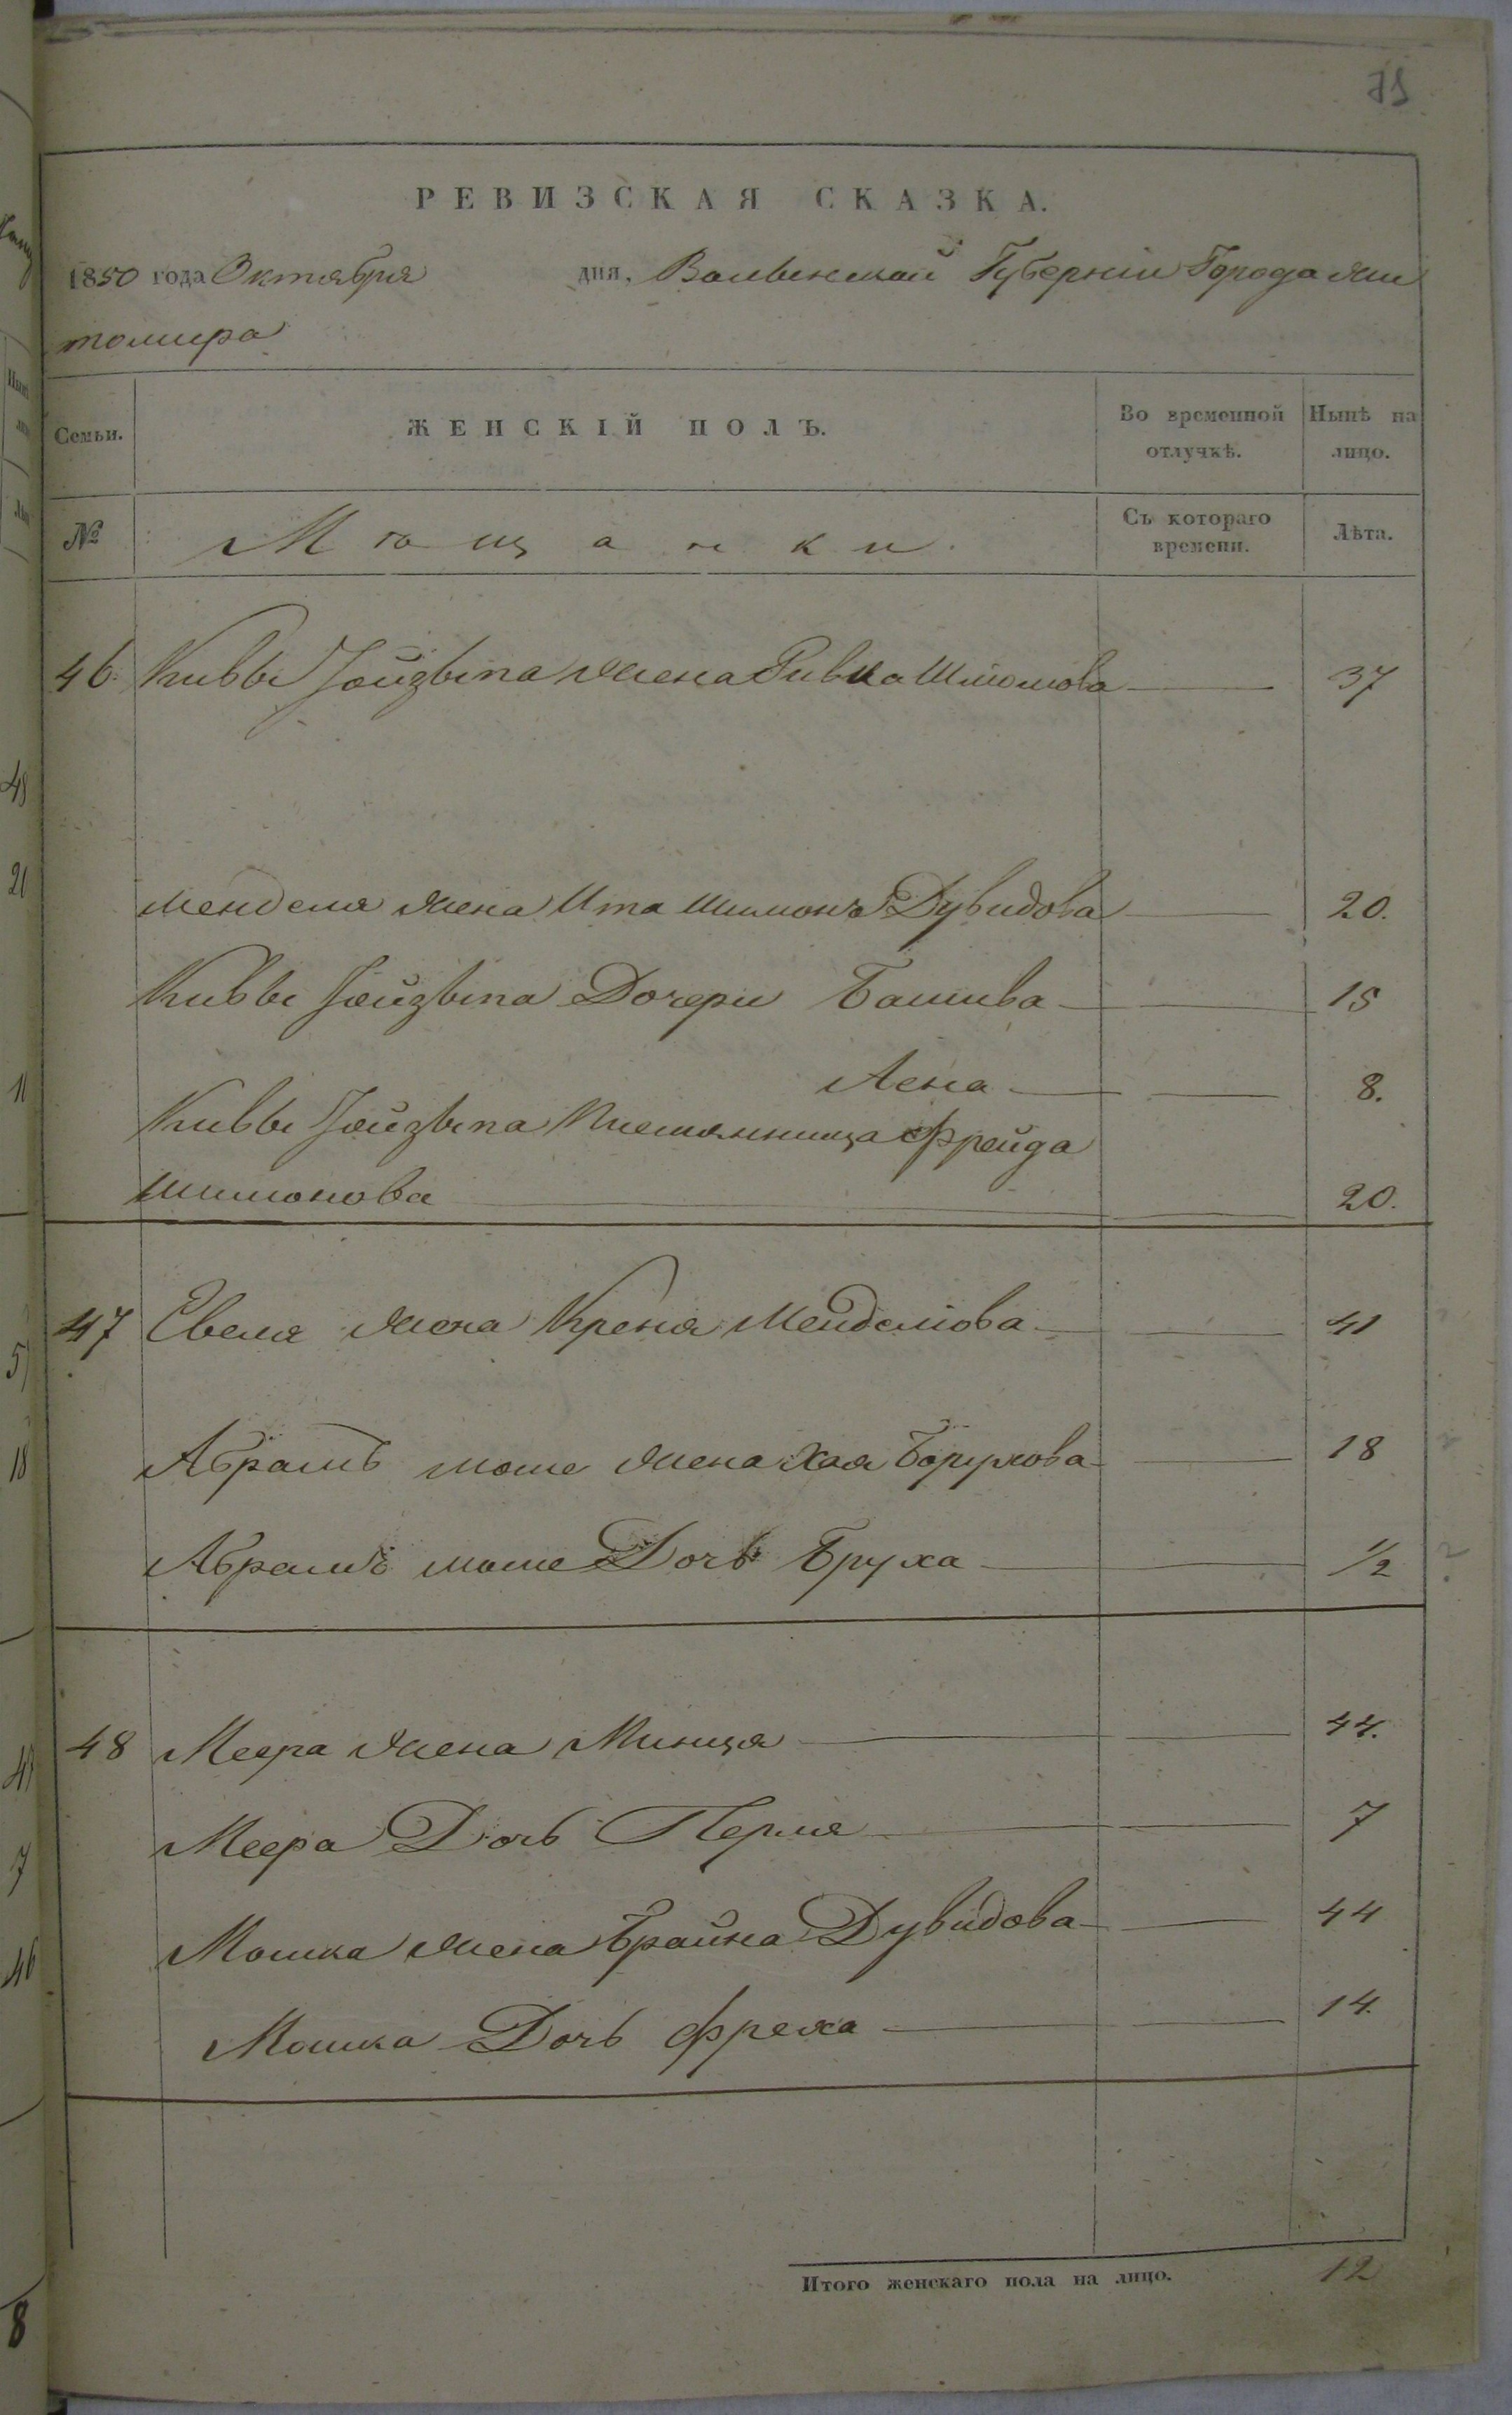 75
РЕВИЗСКАЯ СКАЗКА.
1850 года Октября дня, Волынской Губерніи Города Жи
томира
Семьи. ЖЕНСКІЙ ПОЛЪ. Во временной отлучкѣ. Нынѣ на лицо.
№ Мѣщанки. Съ котораго времени. Лѣта.
46. Кивы Іойзыпа жена Ривка Шліомова 37
Менделя жена Ита Шимонъ Дувидова 20.
Кивы Іойзыпа Дочери Башива 15
Лена 8.
Кивы Іойзыпа Племянница Фрейда
Шимонова 20.
47 Евеля жена Креня Менделіова 41
Абрамъ моше жена Хая Борухова 18
Абрамъ моше Дочь Бруха 1/2
48 Меера жена Минця 44.
Меера Дочь Перля 7
Мошка жена Брайна Дувидова 44
Мошка Дочь Фрема 14.
Итого женскаго пола на лицо. 12